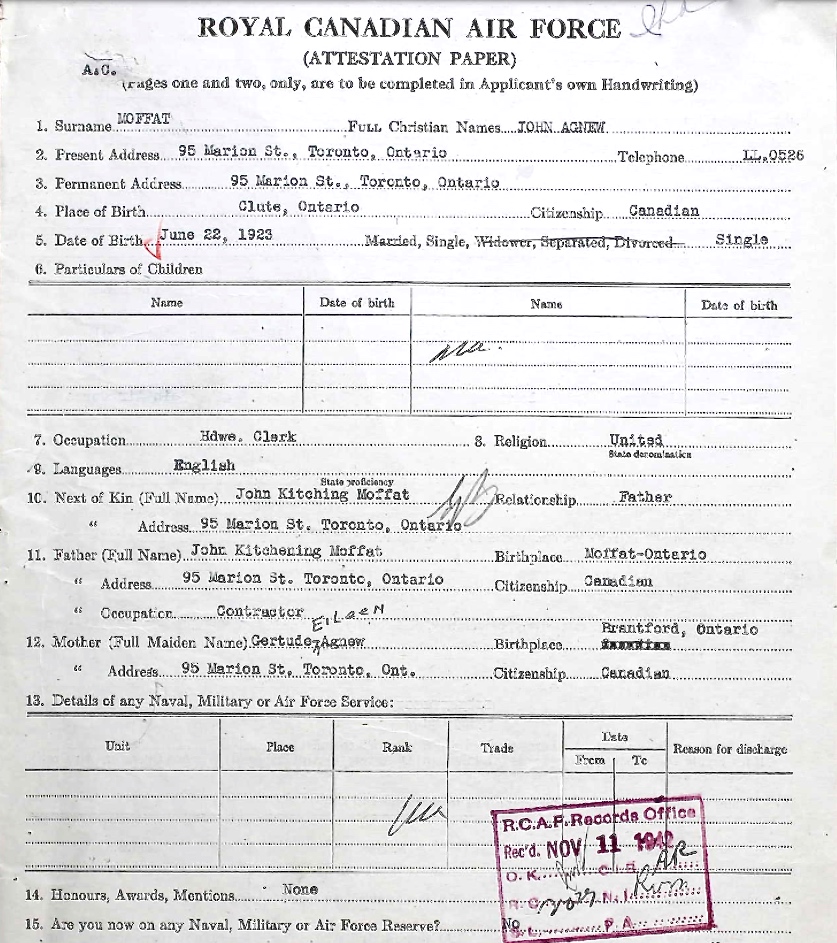 ROYAL CANADIAN AIR FORCE
(ATTESTATION PAPER)
A.C.
(Pages one and two, only, are to be completed in Applicant's own Handwriting)
1. Surname MOFFAT Full Christian Names JOHN AGNEW
2. Present Address 95 Marion St., Toronto, Ontario Telephone LL.0526
3. Permanent Address 95 Marion St., Toronto, Ontario
4. Place of Birth Clute, Ontario Citizenship Canadian
5. Date of Birth June 22, 1923 Married, Single, Widower, Separated, Divorced Single
6. Particulars of Children
Name Date of birth Name Date of birth
7. Occupation Hdwe. Clerk 8. Religion United
State denomination
9. Languages English
State proficiency
10. Next of Kin (Full Name) John Kitching Moffat Relationship Father
" Address 95 Marion St. Toronto, Ontario
11. Father (Full Name) John Kitchening Moffat Birthplace Moffat-Ontario
" Address 95 Marion St. Toronto, Ontario Citizenship Canadian
" Occupation Contractor
EiLeeN
12. Mother (Full Maiden Name) Gertude Agnew Birthplace Brantford, Ontario
" Address 95 Marion St. Toronto, Ont. Citizenship Canadian
13. Details of any Naval, Military or Air Force Service:
Unit Place Rank Trade Date Reason for discharge
From To
R.C.A.F. Records Office
Rec'd. NOV 11 1942
O.K.
N.I.
P.A.
14. Honours, Awards, Mentions None
15. Are you now on any Naval, Military or Air Force Reserve? No